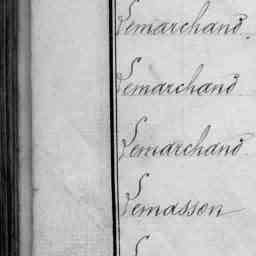 Lemarchand.
Lemarchand
Lemarchand
Lemasson